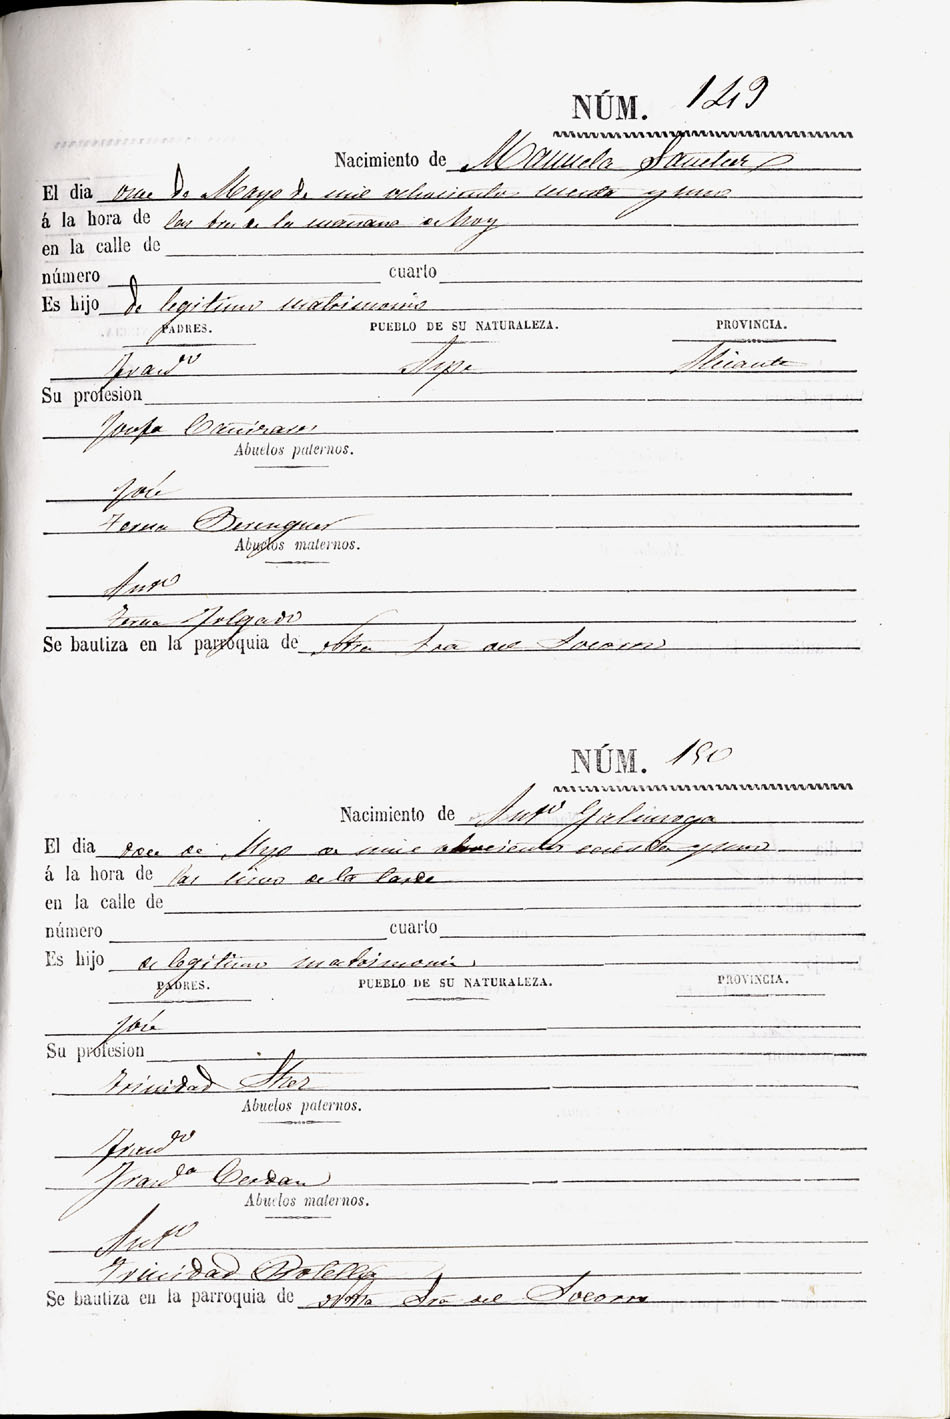 NÚM. 149
Nacimiento de Manuela Sanchez
El dia once de Mayo de mil ochocientos sesenta y uno
á la hora de las tres de la mañana de hoy
en la calle de
número cuarto
Es hijo de legitimo matrimonio
PADRES. PUEBLO DE SU NATURALEZA. PROVINCIA.
Franco Aspe Alicante
Su profesion
Josefa
Abuelos paternos.
José
Teresa Berenguer
Abuelos maternos.
Anto
Teresa
Se bautiza en la parroquia de Ntra Sra del Socorro
NÚM. 150
Nacimiento de Anto Galinsoga
El dia doce de Mayo de mil ochocientos sesenta y uno
á la hora de las cinco de la tarde
en la calle de
número cuarto
Es hijo de legitimo matrimonio
PADRES. PUEBLO DE SU NATURALEZA. PROVINCIA.
José
Su profesion
Trinidad
Abuelos paternos.
Franco
Franca Cerdan
Abuelos maternos.
Anto
Trinidad Botella
Se bautiza en la parroquia de Ntra Sra del Socorro